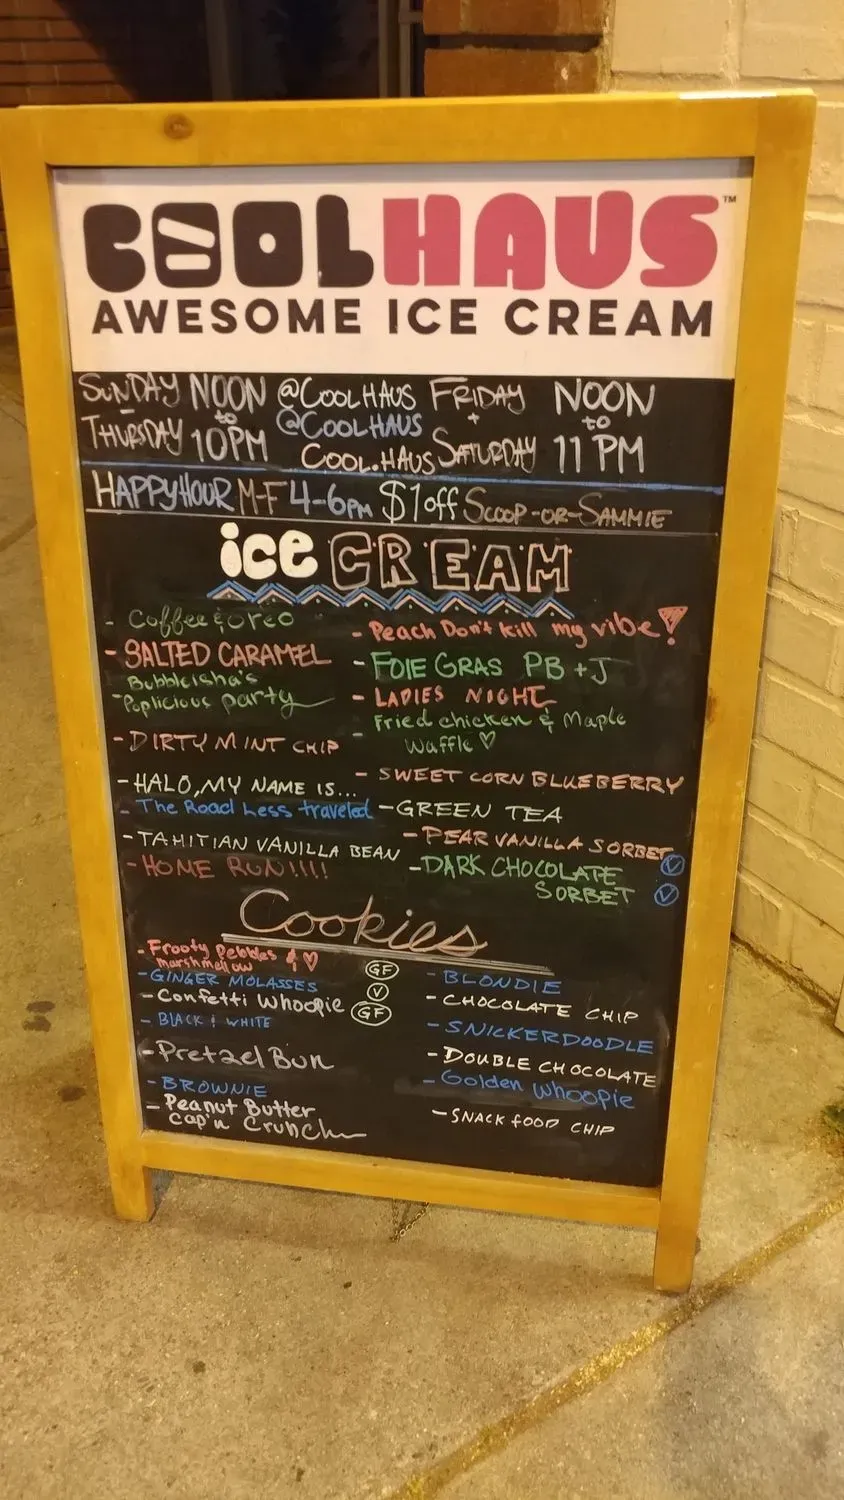 COOLHAUS™
AWESOME ICE CREAM
SUNDAY - THURSDAY NOON to 10PM
@COOLHAUS
@COOLHAUS
COOL.HAUS
FRIDAY + SATURDAY NOON to 11 PM
HAPPY HOUR M-F 4-6pm $1 off SCOOP-OR-SAMMIE
ice CREAM
- Coffee & oreo
- SALTED CARAMEL
- Bubbleisha's
Poplicious party
- DIRTY MINT CHIP
- HALO, MY NAME IS...
- The Road Less traveled
- TAHITIAN VANILLA BEAN
- HOME RUN!!!!
- Peach Don't kill my vibe!
- FOIE GRAS PB + J
- LADIES NIGHT
- Fried chicken & Maple
Waffle ♡
- SWEET CORN BLUEBERRY
- GREEN TEA
- PEAR VANILLA SORBET V
- DARK CHOCOLATE
SORBET V
Cookies
- Frooty Pebbles & ♡
marshmellow GF
- GINGER MOLASSES V
- Confetti Whoopie GF
- BLACK & WHITE
- Pretzel Bun
- BROWNIE
- Peanut Butter
Cap'n Crunch
- BLONDIE
- CHOCOLATE CHIP
- SNICKERDOODLE
- DOUBLE CHOCOLATE
- Golden Whoopie
- SNACK FOOD CHIP